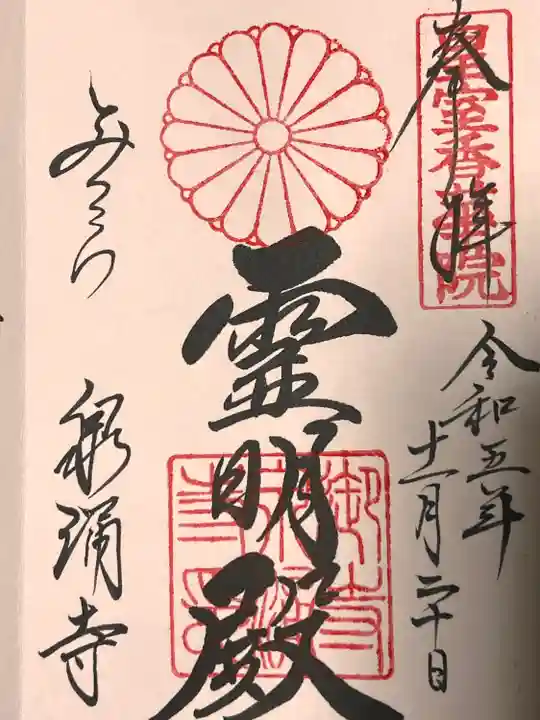 奉拝
皇室香華院
令和五年
十一月二十日
霊明殿
みてら
泉涌寺